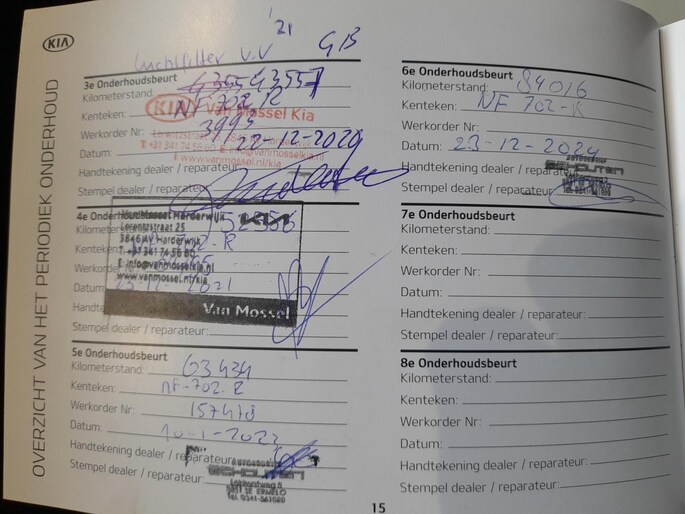 KIA
OVERZICHT VAN HET PERIODIEK ONDERHOUD
'21
Luchtfilter V.V GB
3e Onderhoudsbeurt
Kilometerstand: 43557
KIA
Van Mossel Kia
Kenteken: NF-702-R
Werkorder Nr: 3995
Lorentzstraat
Datum: 22-12-2020
T +31 341 74 56 60
E info@vanmosselkia.nl
www.vanmossel.nl/kia
Handtekening dealer / reparateur
Stempel dealer / reparateur
4e Onderhoudsbeurt
Kilometerstand: 52356
Kenteken: 702-R
Werkorder
Datum: 2021
Handtekening
Van Mossel Harderwijk
Lorentzstraat 25
3846 AV Harderwijk
T: +31 341 74 56 60
E: info@vanmosselkia.nl
www.vanmossel.nl/kia
KIA
Van Mossel
Stempel dealer / reparateur:
5e Onderhoudsbeurt
Kilometerstand: 63434
Kenteken: NF-702-R
Werkorder Nr: 157418
Datum: 10-1-2023
Handtekening dealer / reparateur
Stempel dealer / reparateur
SCHOUTEN
ERMELO
Tel. 0341-561080
6e Onderhoudsbeurt
Kilometerstand: 84016
Kenteken: NF 702-R
Werkorder Nr:
Datum: 23-12-2024
Handtekening dealer /
Stempel dealer / reparateur
SCHOUTEN
7e Onderhoudsbeurt
Kilometerstand:
Kenteken:
Werkorder Nr:
Datum:
Handtekening dealer / reparateur:
Stempel dealer / reparateur:
8e Onderhoudsbeurt
Kilometerstand:
Kenteken:
Werkorder Nr:
Datum:
Handtekening dealer / reparateur:
Stempel dealer / reparateur:
15